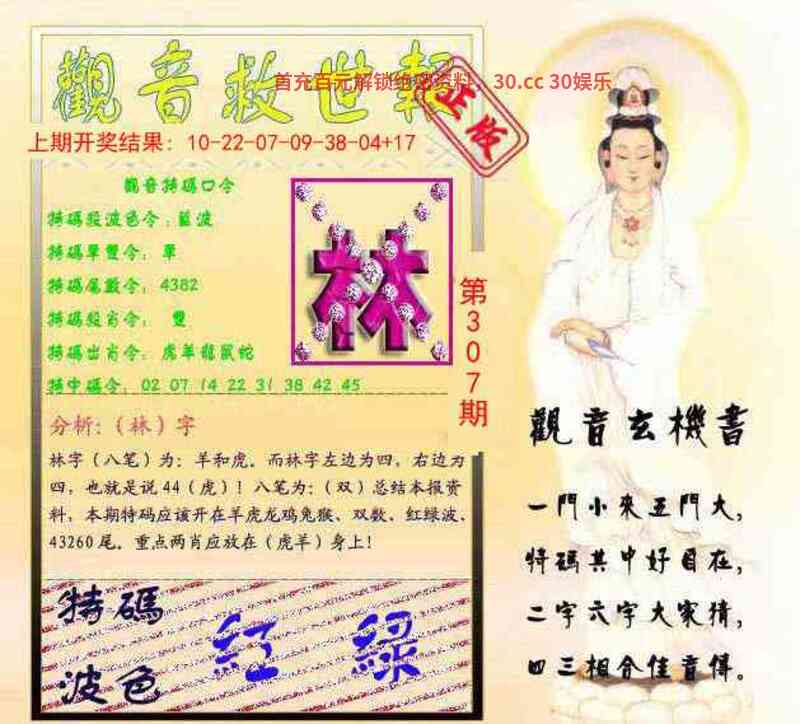 觀音救世報
首充百元解锁绝密资料：30.cc 30娱乐
正版
上期开奖结果：10-22-07-09-38-04+17
觀音特碼口令
特碼段波色令：藍波
特碼單雙令：單
特碼尾數令：4382
特碼段肖令：雙
特碼出肖令：虎羊龍鼠蛇
特中碼令：02 07 14 22 31 38 42 45
林
第307期
分析：（林）字
林字（八笔）为：羊和虎．而林字左边为四，右边为
四，也就是说44（虎）！八笔为：（双）总结本报资
料，本期特码应该开在羊虎龙鸡兔猴、双数，红绿波．
43260尾．重点两肖应放在（虎羊）身上!
特碼
波色
紅 綠
觀音玄機書
一門小來五門大，
特碼其中好目在，
二字六字大家猜，
四三相合佳音傳。